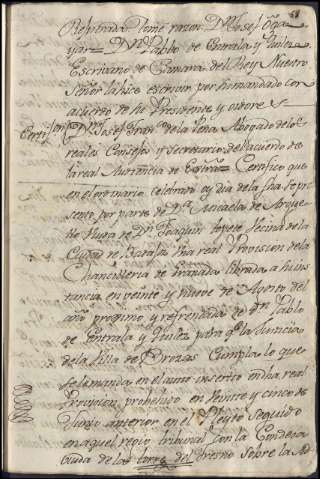 Rexistrada tome razon Dn Josef
yar Dn Pablo de Zentrala y
Escrivano de Camara del Rey Nuestro
Señor la hize escrivir por su mandado con
acuerdo de su Presidente y oidores
Dn Josef Fran de la Peña Abogado de los
reales Consejos y Secretario del acuerdo de
la real Audiencia de Certifico que
en el ordinario celebrado oy dia de la fha se pre
sento por parte de Da Micaela de
viuda de Dn Joaquin topete Vecina de la
Ciudad de una real Provision de la
Chancilleria de Granada librada a su ins
tancia en veinte y nueve de Agosto del
año proximo y refrendada de Dn Pablo
de Zentrala y para qe la Justicia
de la Villa de Brozas Cumpla lo que
se le manda en el auto inserto en dha real
Provision probehido en veinte y cinco de
Junio anterior en el Pleyto seguido
en aquel regio tribunal con la Condesa
viuda de la torre del fresno sobre la Ad